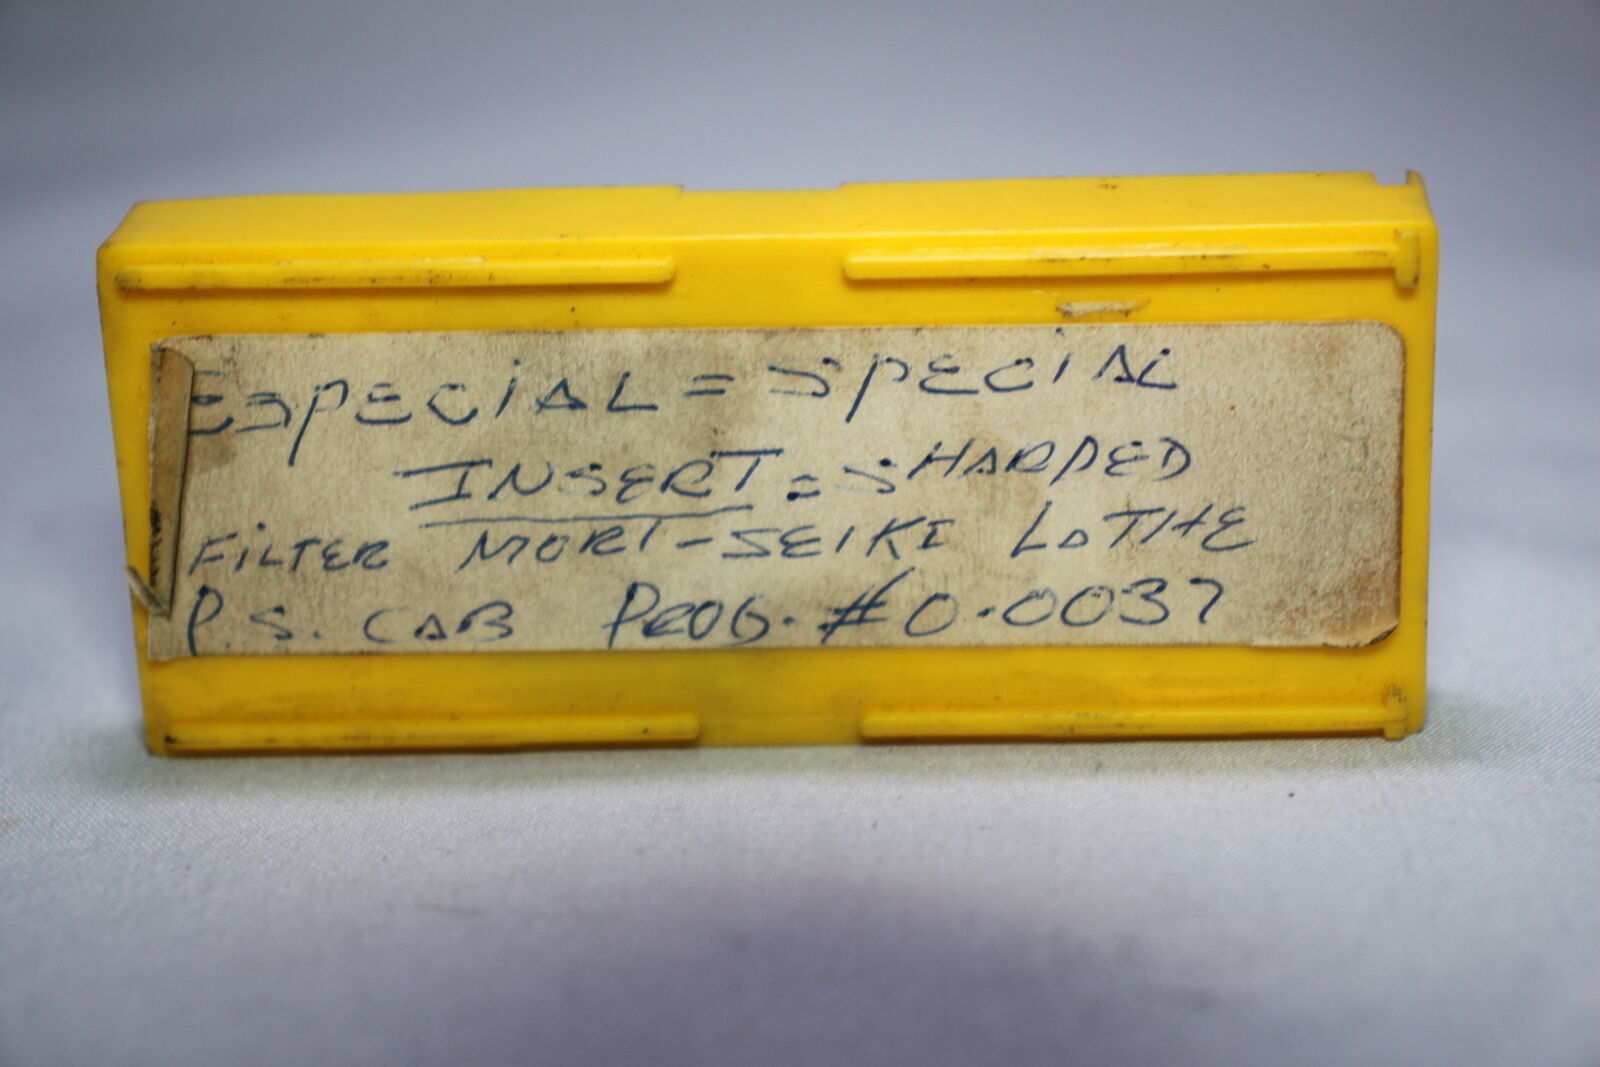 ESPECIAL = SPECIAL
INSERT = SHARPED
FILTER MORI-SEIKI LATHE
P.S. CAB PROG. #0.0037